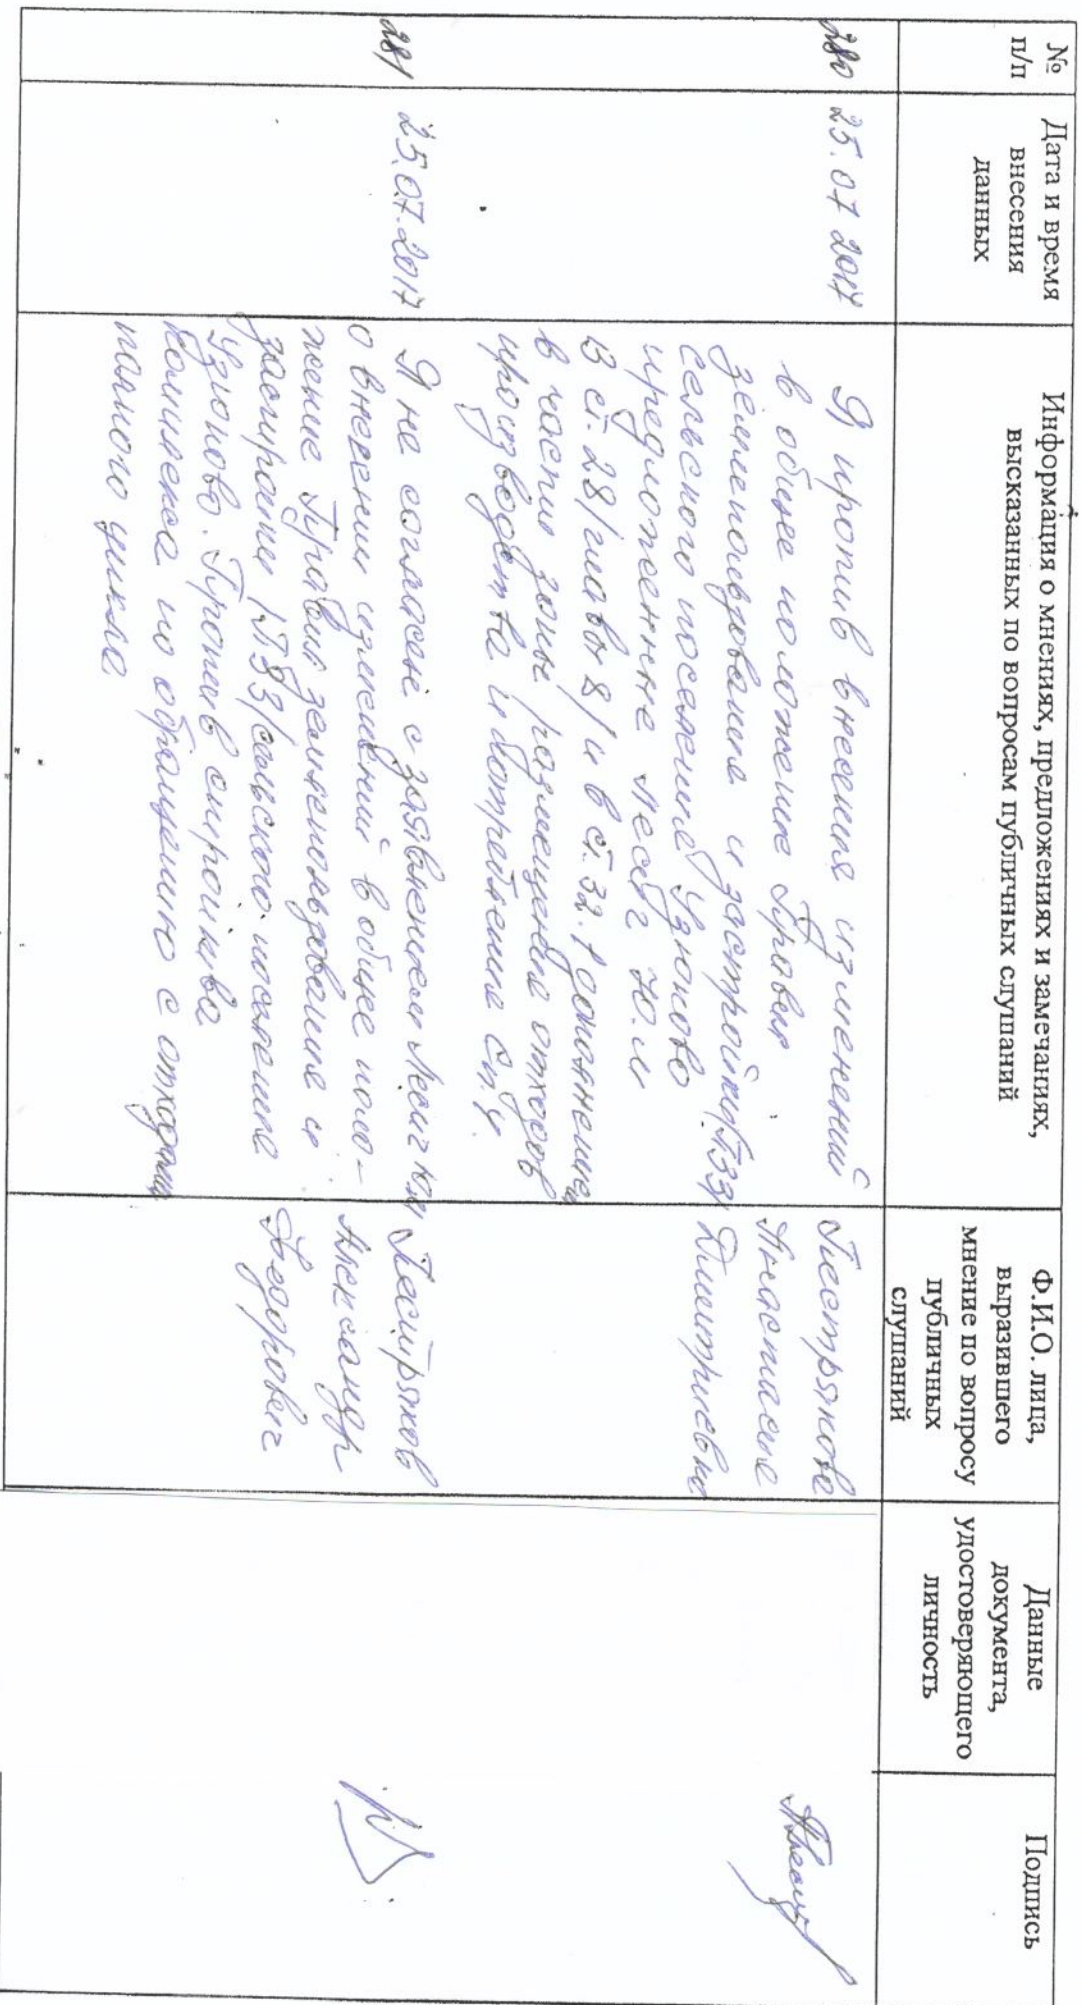 № п/п
Дата и время внесения данных
Информация о мнениях, предложениях и замечаниях,
высказанных по вопросам публичных слушаний
Ф.И.О. лица,
выразившего
мнение по вопросу
публичных
слушаний
Данные
документа,
удостоверяющего
личность
Подпись
280
25.07 2017
Я против внесения изменений
в общее положение Правил
землепользования и застройки (ПЗЗ)
сельского поселения Узуново
предложение Ю.М
В ст. 28/глава 8/ и в ст. 32.1 дополнения
в части зоны размещения отходов
производства и потребления
Пестрякова
Анастасия
Дмитриевна
281
25.07.2017
Я не согласен с заявлением
о внесении изменений в общее поло-
жение Правил землепользования и
застройки /ПЗЗ/ сельского поселения
Узуново. Против стройки
комплекса по обращению с отходами
полного цикла
Пестряков
Александр
Федорович